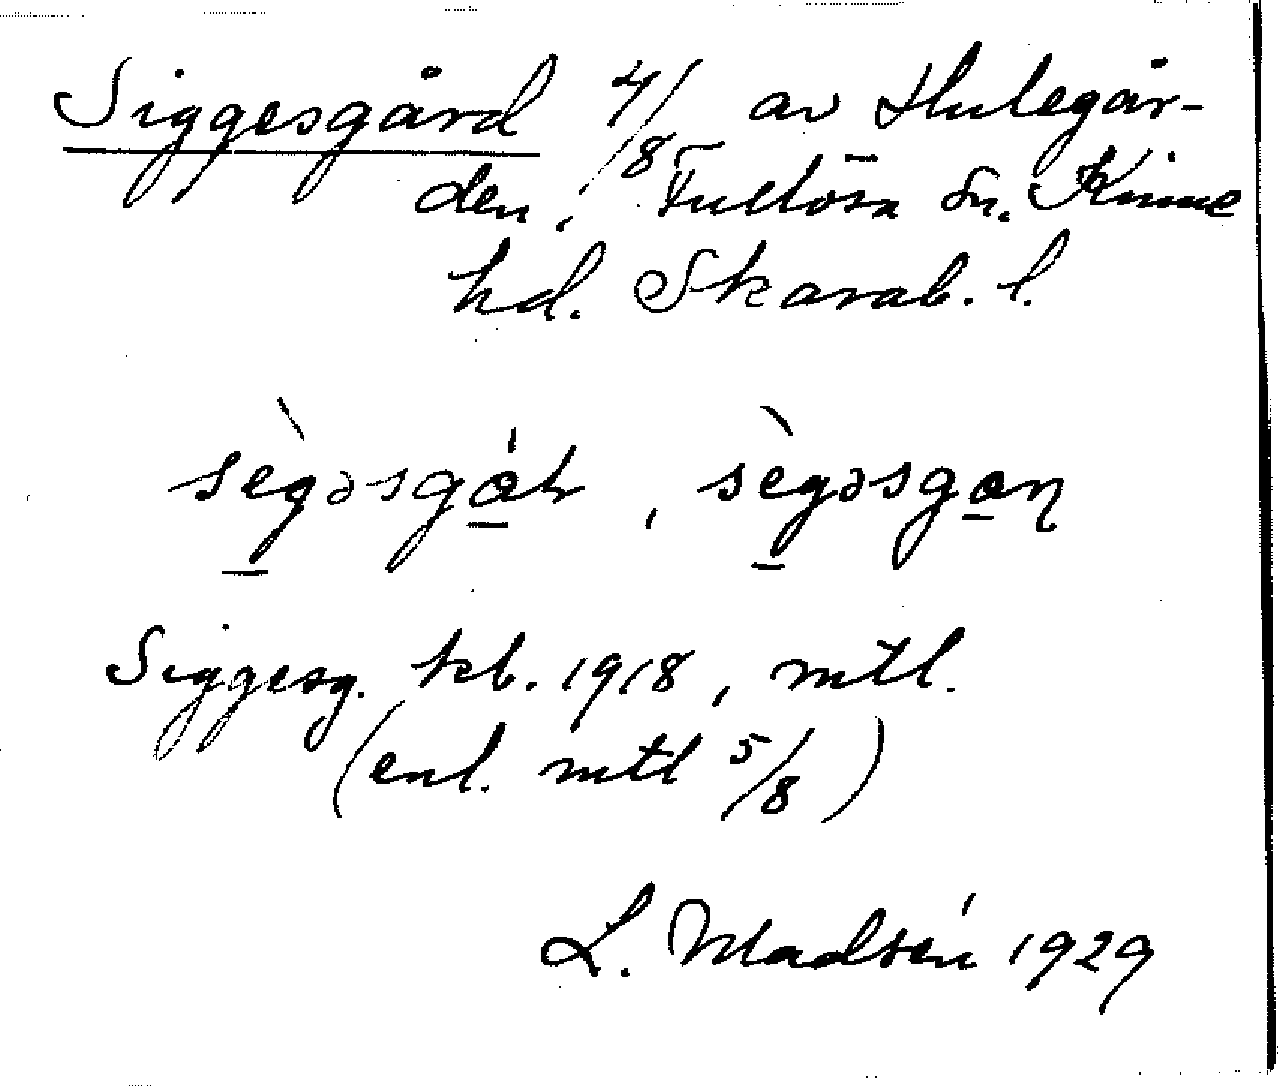 Siggesgård 4/8 av Hulegår-
den, Fullösa sn. Kinne
hd. Skarab. l.
sègəsgɑ̀ʜ, sègəsgɑɳ
Siggesg. kb. 1918, mtl.
(enl. mtl 5/8)
L. Madsén 1929